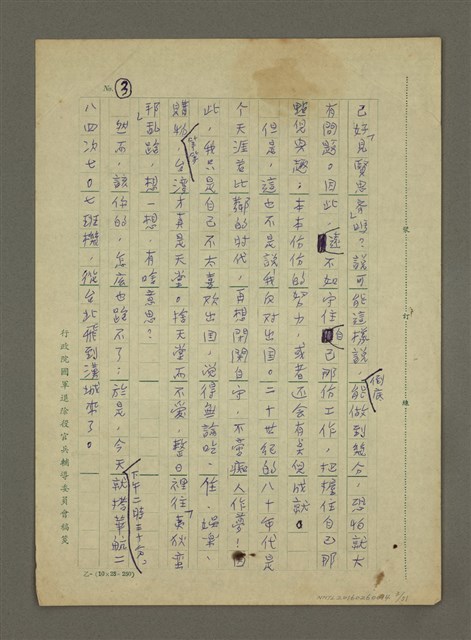 No. 3
己好「見賢思齊」嗎？就可能這樣說，倒底能做到幾分，恐怕就大
有問題。因此，遠不如守住自己那份工作，把握住自己那
點兒樂趣；本本份份的努力，或者还会有点兒成就。
但是，這也不是說我反对出国。二十世紀的八十年代是
个天涯若比鄰的时代，再想閉関自守，不啻痴人作夢！因
此，我只是自己不太喜欢出国，觉得無論吃、住、娛樂、
購物，台灣才真是天堂。捨天堂而不爱，整日裡往「夷狄蛮
邦」乱跑，想一想，有啥意思？
然不，該你的，怎底也跑不了；於是，今天下午二時三十六分，就搭華航二
八四次七〇七班機，從台北飛到漢城來了。
行政院國軍退除役官兵輔導委員會稿箋
號
訂
線
乙—(10×25=250)